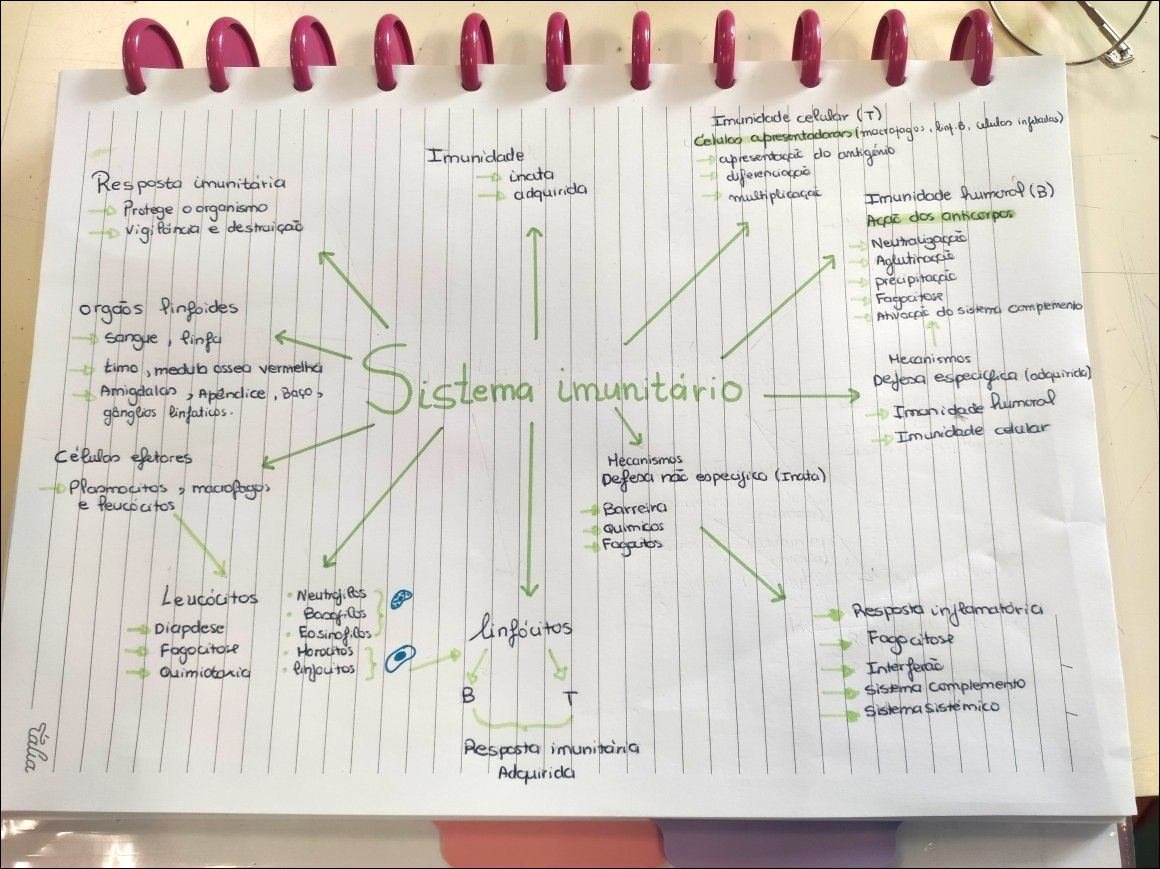 Resposta imunitária
Protege o organismo
Vigilância e destruição
Imunidade
inata
adquirida
Imunidade celular (T)
Células apresentadoras (macrofagos, linf. B, celulas infetadas)
apresentação do antigénio
diferenciação
multiplicação
Imunidade humoral (B)
Ação dos anticorpos
Neutralização
Aglutinação
precipitação
Fagocitose
Ativação do sistema complemento
Mecanismos
Defesa especifica (adquirida)
Imunidade humoral
Imunidade celular
orgãos linfoides
sangue, linfa
timo, medula ossea vermelha
Amigdalas, Apêndice, Baço,
gânglios linfaticos.
Sistema imunitário
Células efetores
Plasmocitos, macrofagos
e leucócitos
Mecanismos
Defesa não especifico (Inata)
Barreira
Quimicos
Fagocitos
Leucócitos
Diapdese
Fagocitose
Quimiotaxia
Neutrofilos
Basofilos
Eosinofilos
Monocitos
linfocitos
linfócitos
B T
Resposta imunitária
Adquirida
Resposta inflamatória
Fagocitose
Interferão
Sistema complemento
Sistema Sistémico
Tália